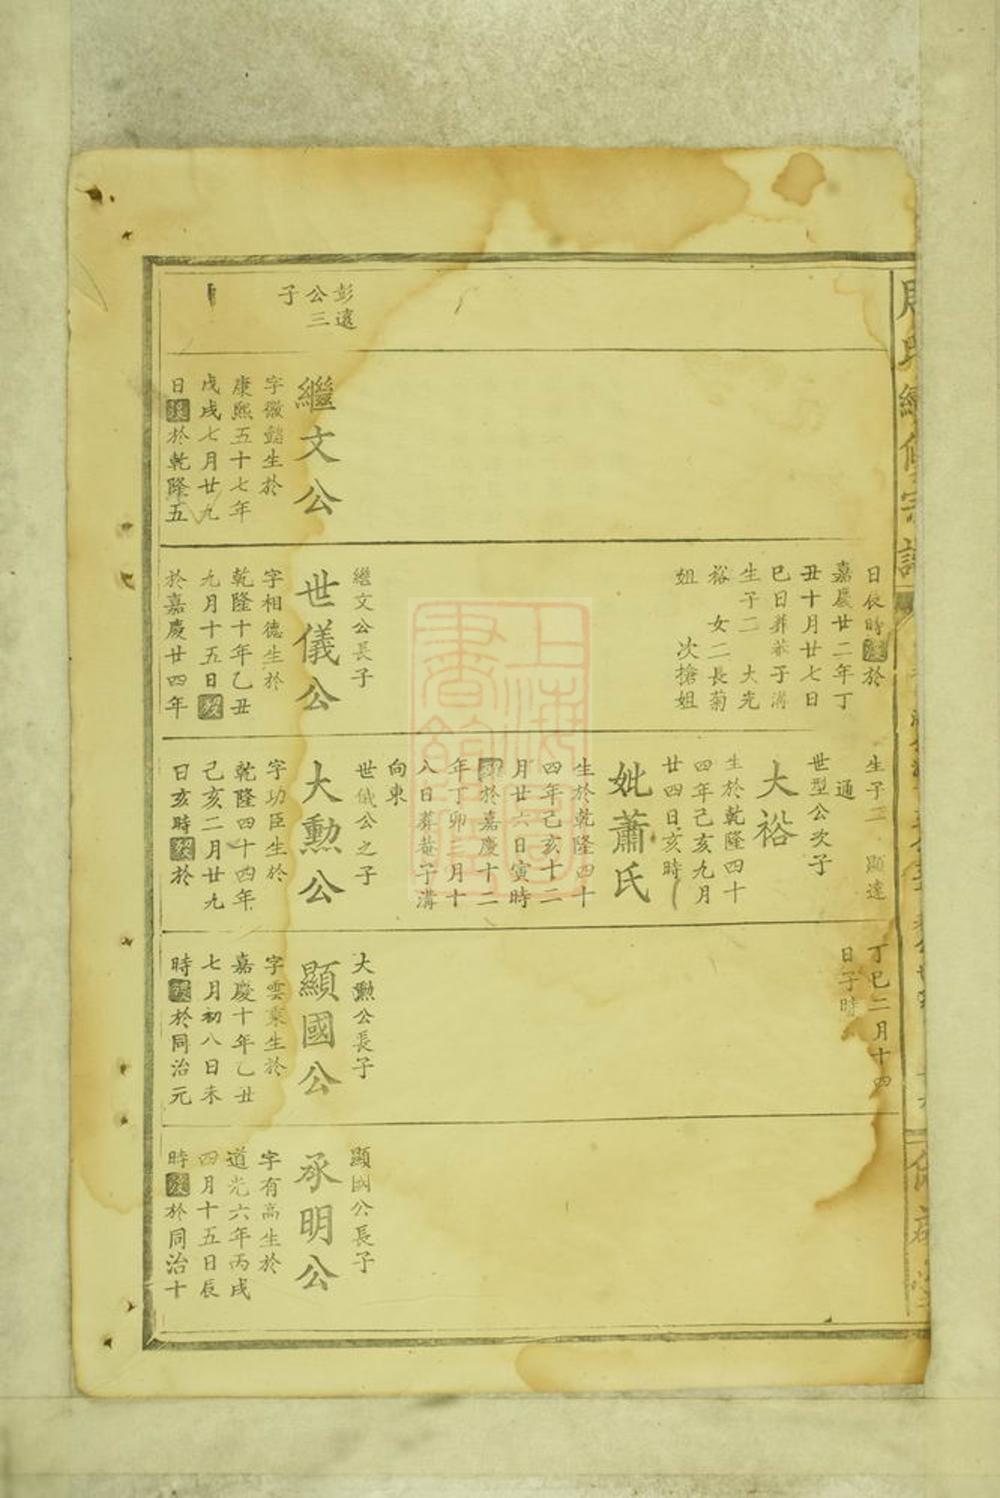 彭遠
公三
子
繼文公
字徽猷生於
康熙五十七年
戊戌七月廿九
日歿於乾隆五
日辰時歿於
嘉慶廿二年丁
丑十月廿七日
巳日葬菾子溝
生子二 大光
裕 女二長菊
姐 次搶姐
繼文公長子
世儀公
字相德生於
乾隆十年乙丑
九月十五日歿
於嘉慶廿四年
生子二 顯達
通
世型公次子
大裕
生於乾隆四十
四年己亥九月
廿四日亥時
妣蕭氏
生於乾隆四十
四年己亥十二
月廿六日寅時
歿於嘉慶十二
年丁卯三月十
八日葬菴子溝
向東
世儀公之子
大勳公
字功臣生於
乾隆四十四年
己亥二月廿九
日亥時歿於
丁巳二月十四
日子時
大勲公長子
顯國公
字雲東生於
嘉慶十年乙丑
七月初八日未
時歿於同治元
顯國公長子
承明公
字有高生於
道光六年丙戌
四月十五日辰
時歿於同治十
上海圖書館藏